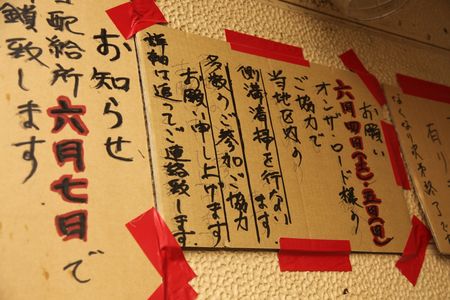 お願い
六月四日(土)・五日(日)
オンザ・ロード様の
ご協力で
当地区内の
側溝清掃を行ない
ます
多数のご参加ご協力
お願い申し上げます
詳細は追ってご連絡致します
お知らせ
配給所六月七日で
鎖致します